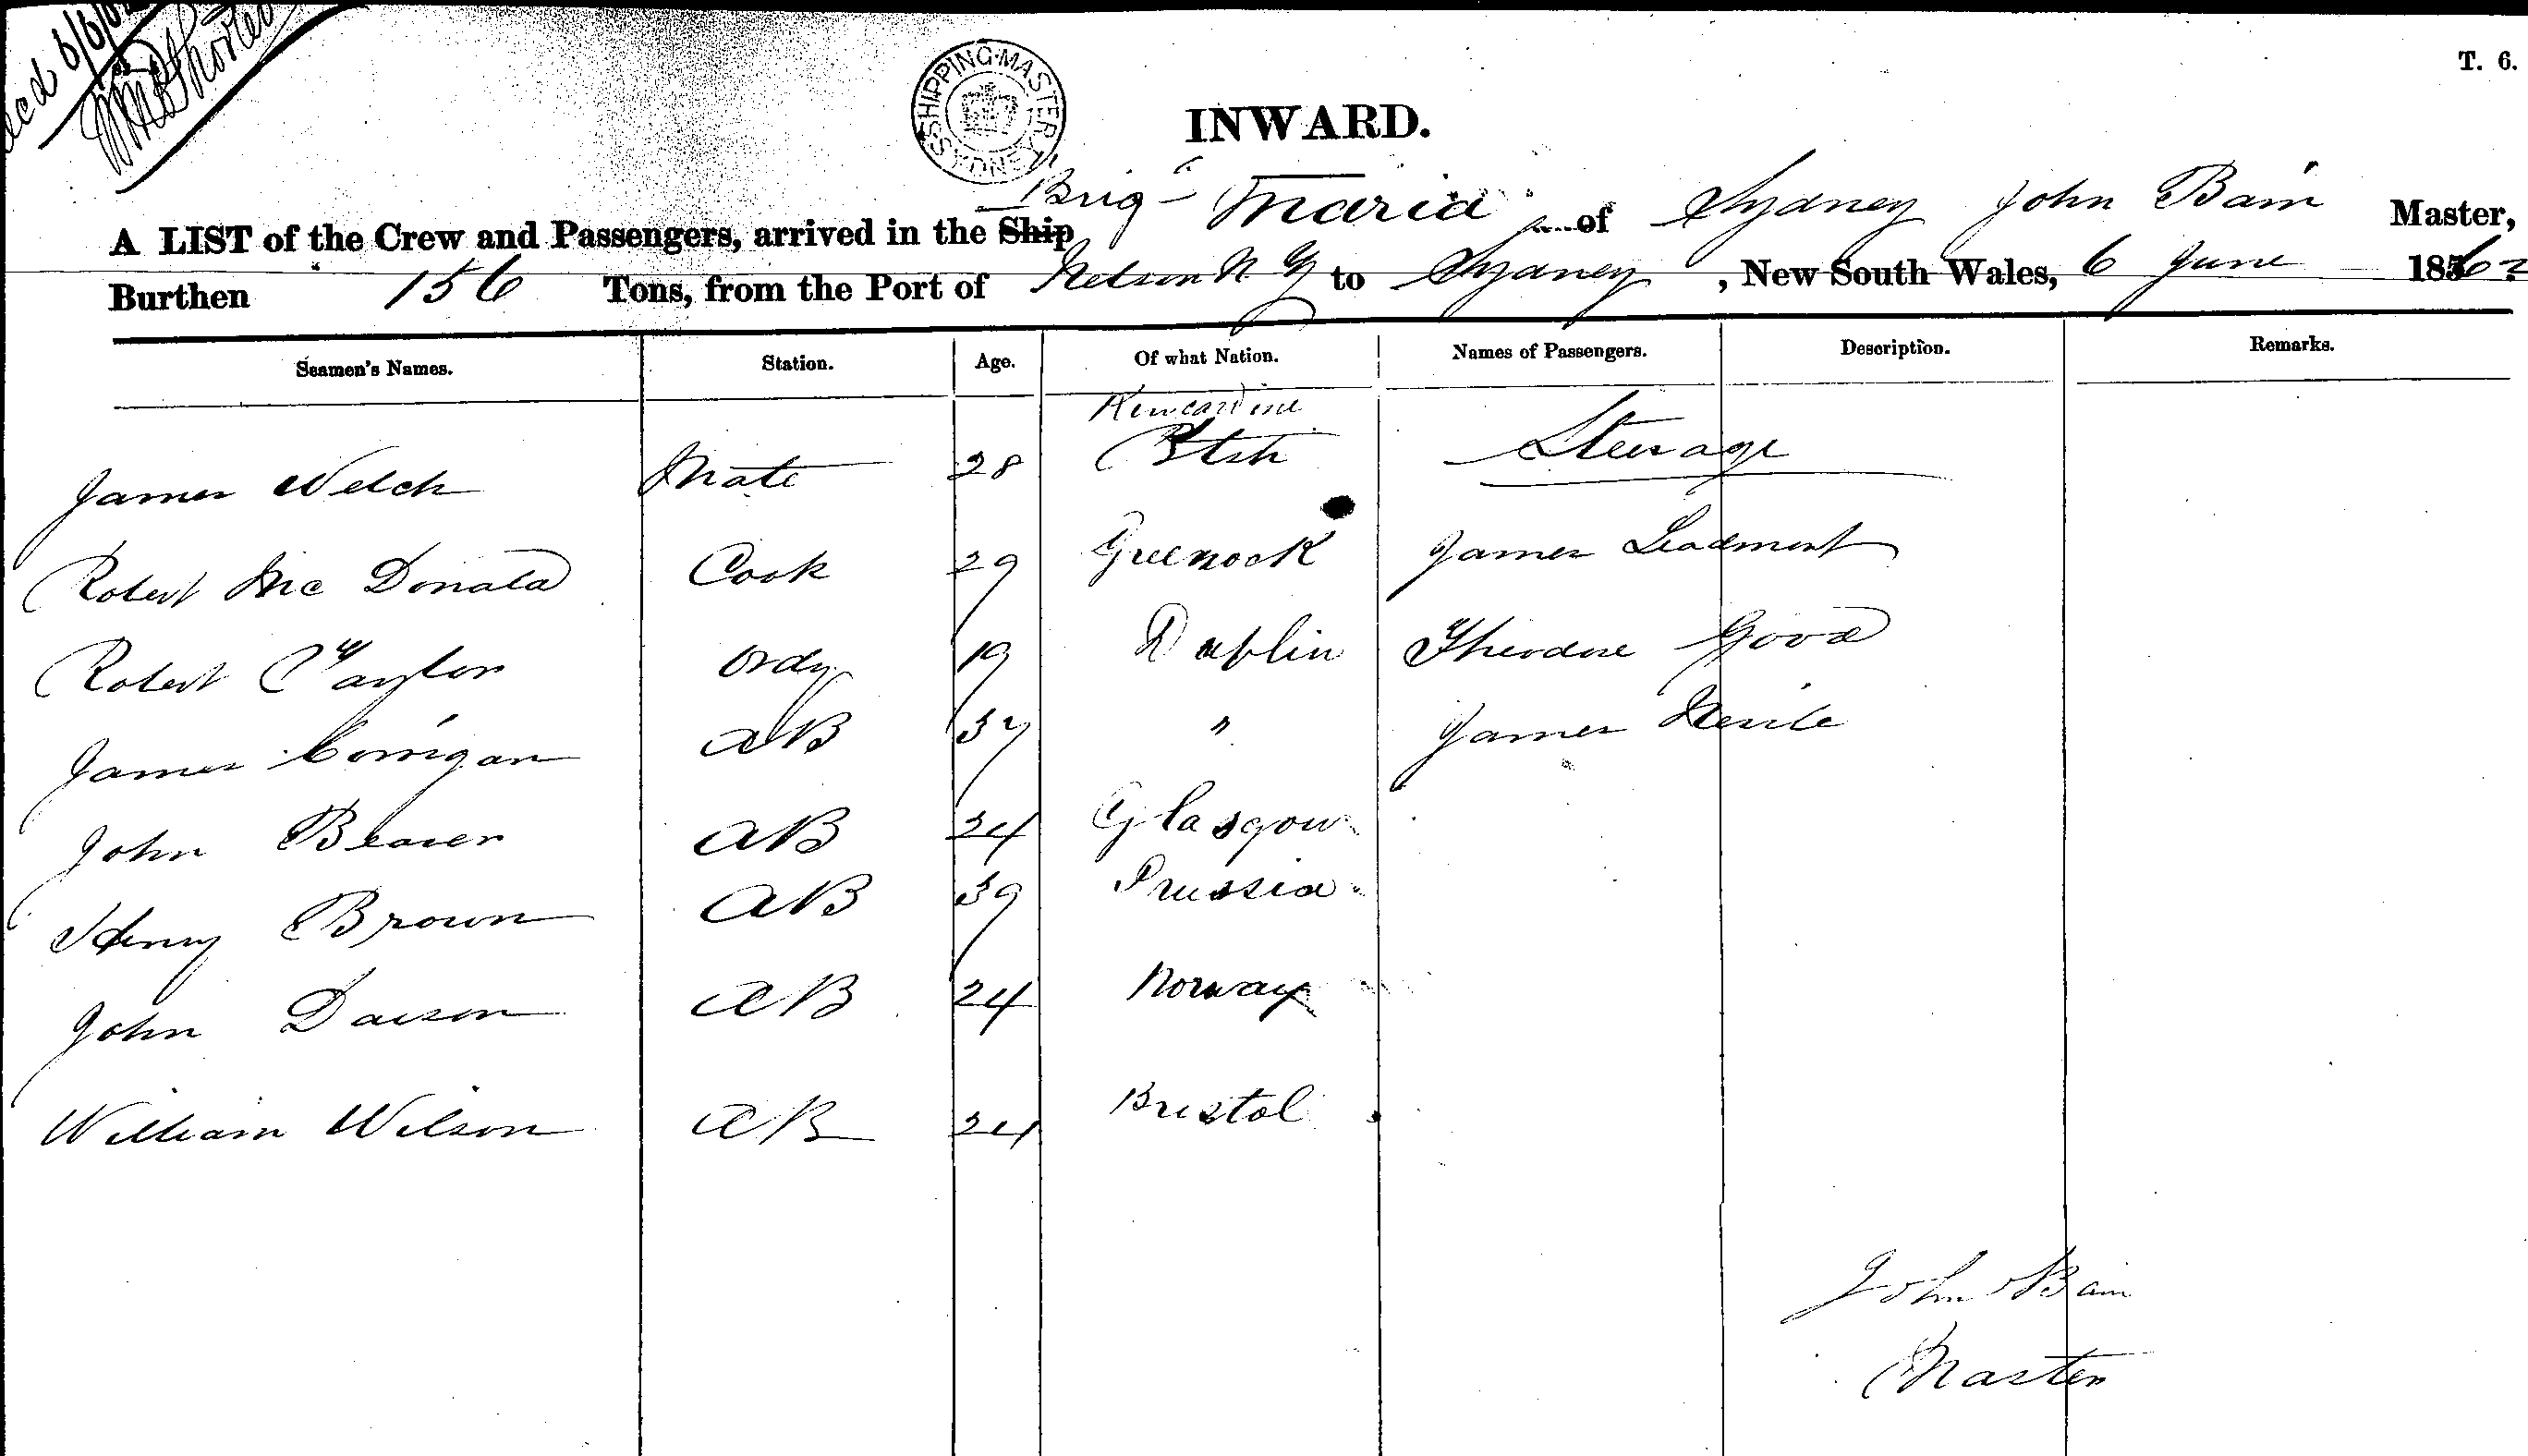 T. 6.
SHIPPING MASTER SYDNEY
INWARD.
A LIST of the Crew and Passengers, arrived in the Ship Brig "Maria" of Sydney John Bain Master,
Burthen 156 Tons, from the Port of Nelson N Z to Sydney, New South Wales, 6 June 1862
Seamen's Names. Station. Age. Of what Nation. Names of Passengers. Description. Remarks.
Kincardine
James Welch Mate 28 Btsh Steerage
Robert McDonald Cook 29 Greenock James
Robert Taylor Ordy 19 Dublin Theodore Good
James Corrigan AB 37 " James
John Beaver AB 24 Glasgow
Henry Brown AB 39 Prussia
John AB 24 Norway
William Wilson AB 24 Bristol
John Bain
Master